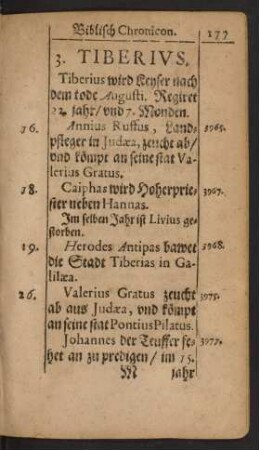 Biblisch Chronicon. 177
3. TIBERIVS.
Tiberius wird Keyser nach
dem tode Augusti. Regiret
22. jahr/ vnd 7. Monden.
16. Annius Ruffus, Land- 3965.
pfleger in Judæa, zeucht ab/
vnd kömpt an seine stat Va-
lerius Gratus.
18. Caiphas wird Hoherprie- 3967.
ster neben Hannas.
Im selben Jahr ist Livius ge-
storben.
19. Herodes Antipas bawet 3968.
die Stadt Tiberias in Ga-
lilæa.
26. Valerius Gratus zeucht 3975.
ab aus Judæa, vnd kömpt
an seine stat Pontius Pilatus.
Johannes der Teuffer fe- 3977.
het an zu predigen/ im 15.
M jahr